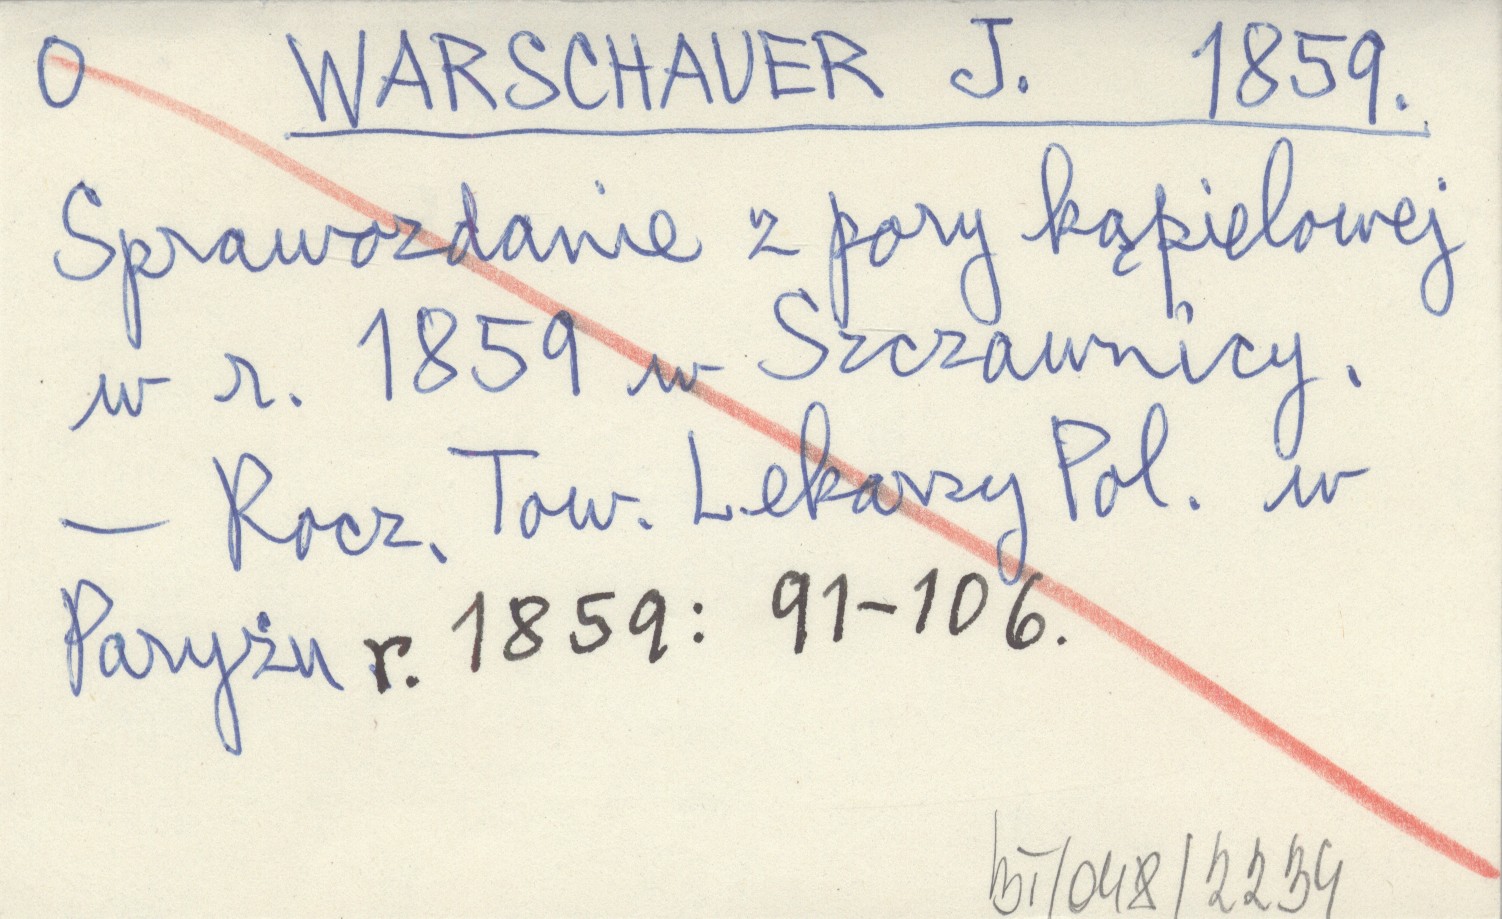 O WARSCHAUER J. 1859.
Sprawozdanie z pory kąpielowej
w r. 1859 w Szczawnicy.
— Rocz. Tow. Lekarzy Pol. w
Paryżu r. 1859: 91-106.
/048/2239